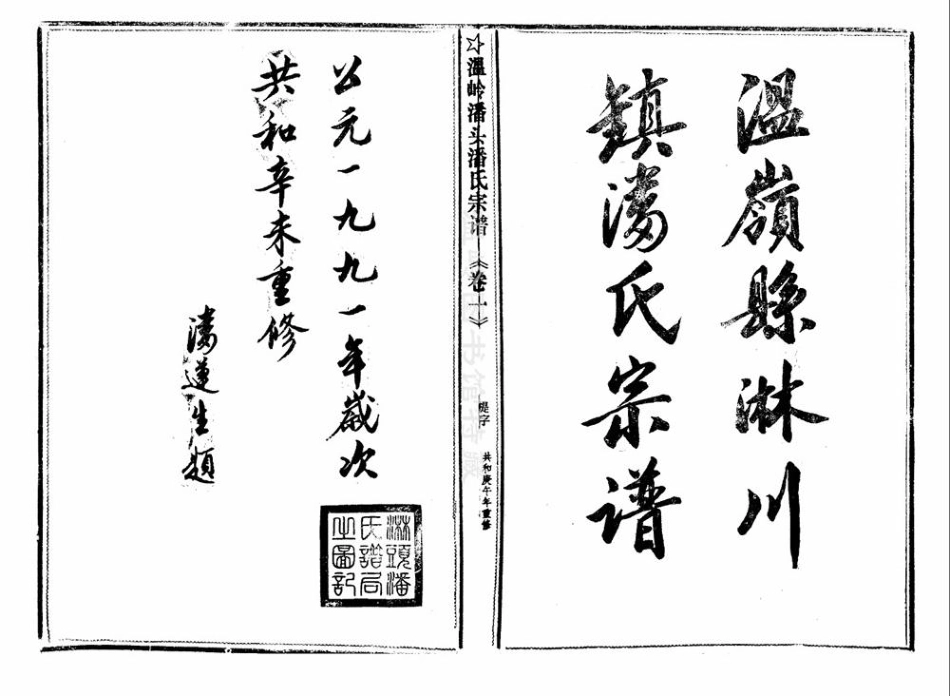 溫嶺縣淋川
鎮潘氏宗谱
☆溫岭潘头潘氏宗谱《卷一》
提字
共和庚午年重修
公元一九九一年歲次
共和辛未重修
潘生題
淋頭潘
氏譜局
之圖記
书馆特藏